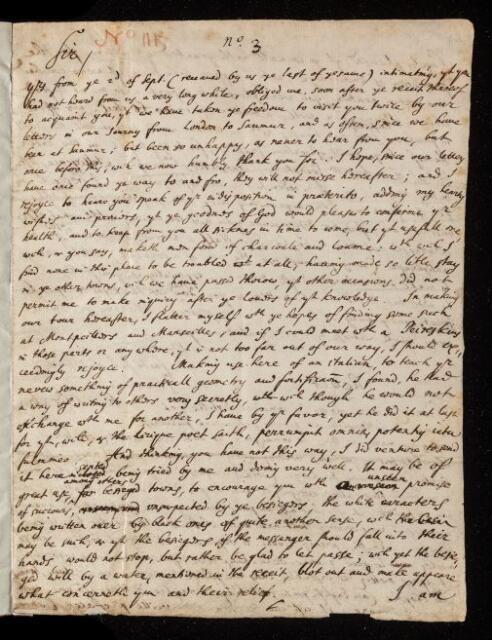 n° 3
Sir,
yrs. from ye 2d of Sept. (received by us ye last of ye same) intimating, yt you
had not heard from us a very long while, obliged me, soon after ye receit thereof
to acquaint you, yt we have taken ye freedome to visit you twice by our
letters in our Journy from London to Saumur, and as often, since we have
been at Saumur, but been so unhappy, as never to hear from you, but
once before this; wch we now humbly thank you for. I hope, since our letters
have once found ye way to and fro, they will not misse hereafter; and I
rejoyce to heare you speak of yr indisposition in præterito, adding my hearty
wishes and prayers, yt ye goodnes of God would please to confirme yr
health, and to keep from you all sicknes in time to come, but yt usefull one
wch, as you say, maketh men fond of charcoale and loame; wth wch I
find none in this place to be troubled at all; having made so little stay
in ye other townes, wch we have passed thorow, yt other mens did not
permit me to make inquiry after ye lovers of yt knowledge. In making
our tour hereafter, I flatter myself wth ye hopes of finding some such
at Montpelliers and Marseilles; and if I could meet with a Peireskius
in those parts or any where, yt is not too far out of our way, I should ex-
ceedingly rejoyce. Making use here of an Italian, to teach yr
nevew something of practicall geometry and fortification, I found, he had
a way of writing to others very secretly, wch though he would not
exchange wth me for another, I have by yr favor, yet he did it at last
for yt, wch, as the Lyrique poet saith, perrumpit omnia, potentius ictu
fulmineo. And thinking, you have not this way, I did venture to send
it here inclosed being tried by me and doing very well. It may be of
great use, among others, for besieged towns, to encourage you wth unseen promise
of succours, unsuspected by ye besiegers, the white caracters
being written over by black ones of quite another sense, wch
may be such, as yt the besiegers, if the messenger should fall into their
hands would not stop, but rather be glad to let passe; wch yet the besie-
ged will by a water, mentioned in the receit, blot out and make appeare
what concerneth you and their relief. I am